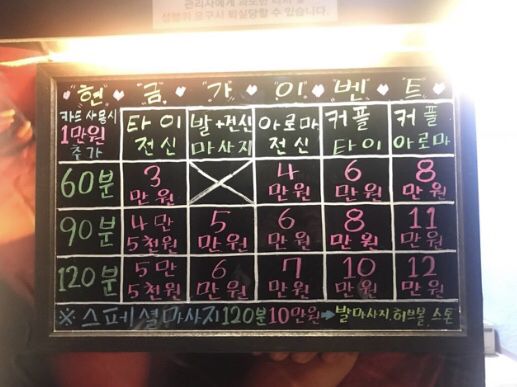 관리사에게 과도한 터치 및
성행위 요구시 퇴실당할 수 있습니다.
현 금 가 이 벤 트
카드 사용시 1만원 추가
타이 전신
발+전신 마사지
아로마 전신
커플 타이
커플 아로마
60분 3만원 4만원 6만원 8만원
90분 4만5천원 5만원 6만원 8만원 11만원
120분 5만5천원 6만원 7만원 10만원 12만원
※ 스페셜마사지 120분 10만원 → 발마사지, 허브볼, 스톤